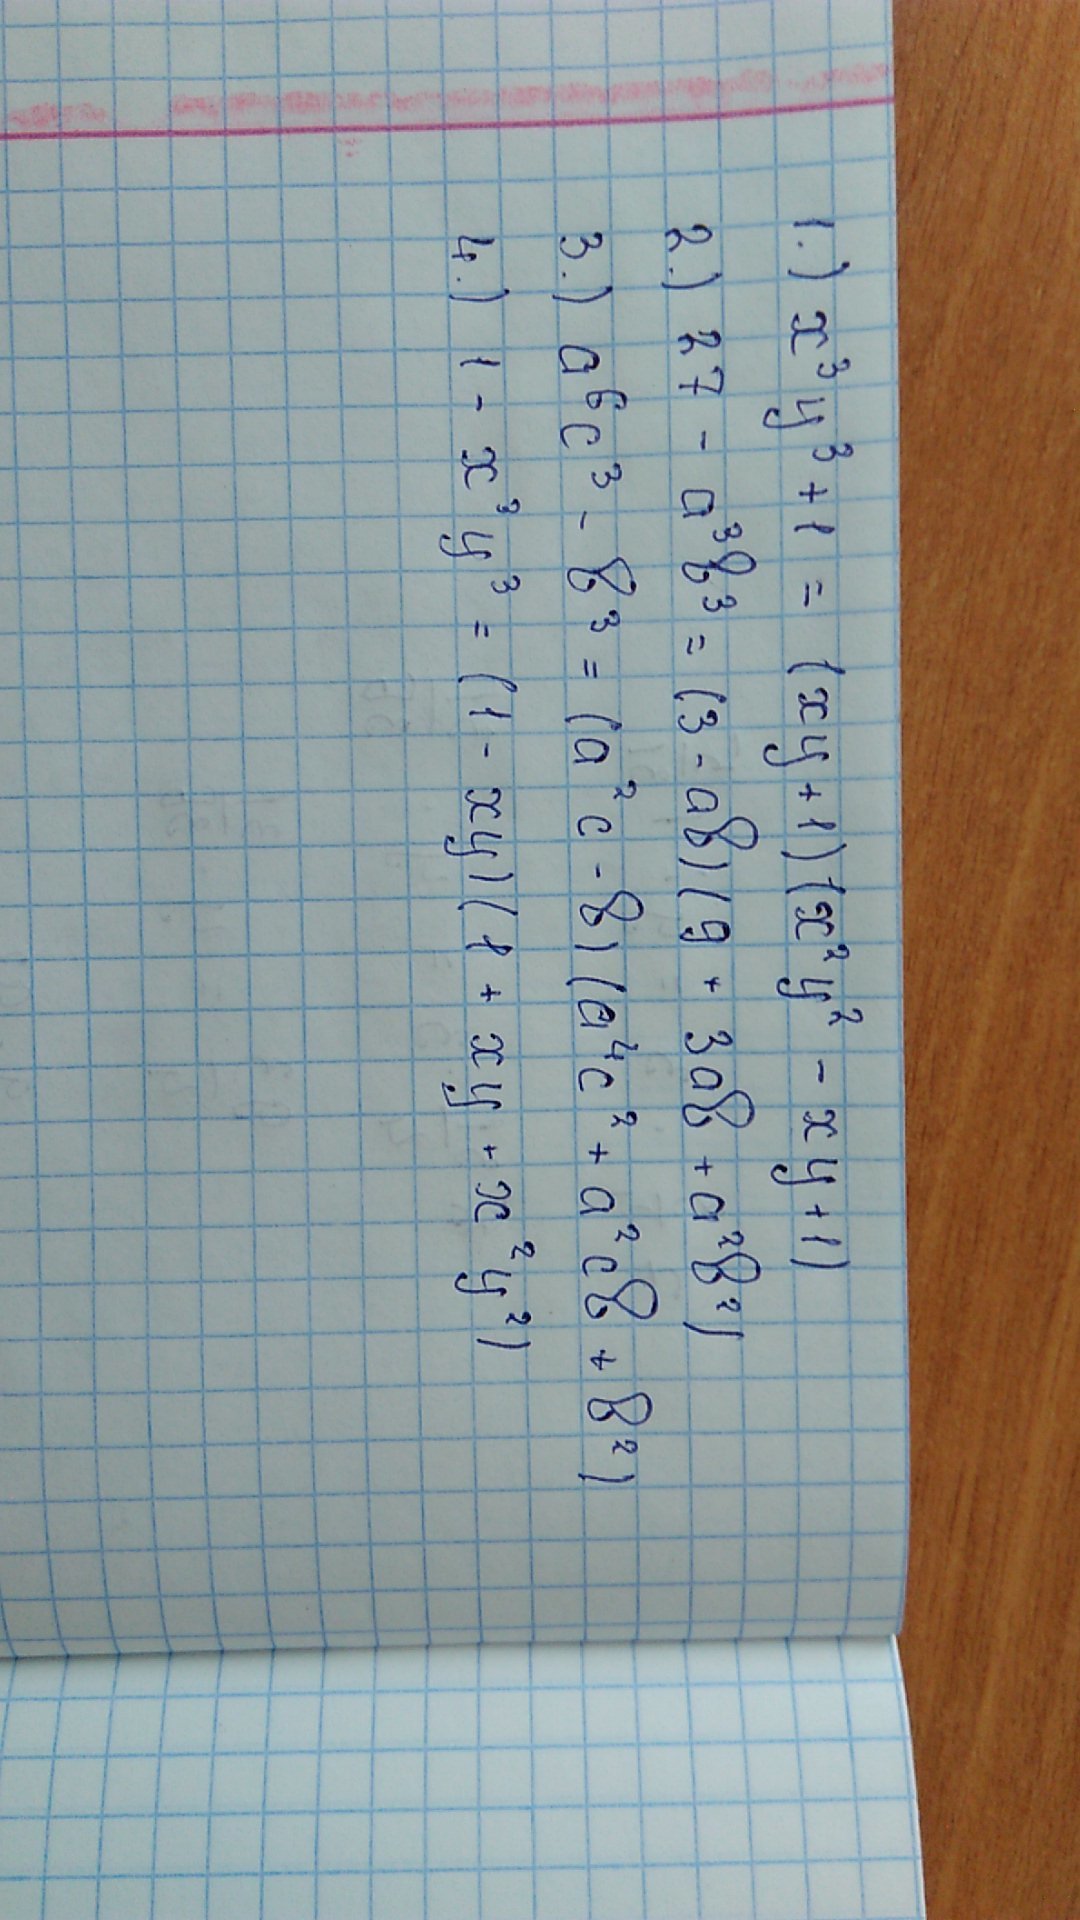 1.) x³y³+1 = (xy+1)(x²y² - xy+1)
2.) 27 - a³b³ = (3 - ab)(9 + 3ab + a²b²)
3.) a⁶c³ - b³ = (a²c - b)(a⁴c² + a²cb + b²)
4.) 1 - x³y³ = (1 - xy)(1 + xy + x²y²)